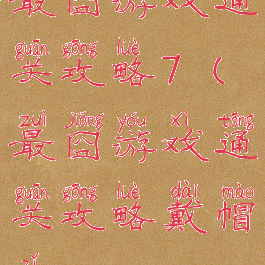 最囧游戏通
guān gōng lüè
关攻略7(
zuì jiǒng yóu xì tōng
最囧游戏通
guān gōng lüè dài mào
关攻略戴帽
zǐ